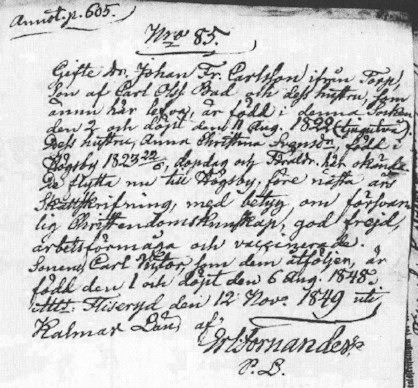 Annot. p. 605.
Nro 85.
Gifte Dr. Johan Fr. Carlsson ifrån Torp,
Son af Carl Olss Bad och dess hustru, som
ännu här lefva, är född i denna Socken
den 2 och döpt den 4 Aug. 1822
Dess hustru, Anna Christina född i
Högsby 1823 dopdag och Föräldr. här okände
De flytta nu till Högsby, före nästa års
Skattskrifning, med betyg om försvar-
lig Christendomskunskap, god frejd,
arbetsförmåga och vaccinerade.
Sonen, Carl Victor, som dem åtföljer, är
född den 1 och döpt den 6 Aug. 1848.
Att. Fliseryd den 12 Nov. 1849 uti
Kalmar Län, af
Hornander
P. L.